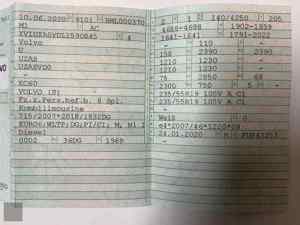 10.06.2020 9101
M1 AC
4
Volvo
U
UZA8
UZA8VD0
-
XC60
VOLVO (S)
Fz.z.Pers.bef.b. 8 Spl.
Kombilimousine
715/2007*2018/1832DG
EURO6;WLTP;DG;PI/CI; M, N1 I
Diesel
0002 36DG 1969
2 1 140/4250 205
4688-4688 1902-1959
1641-1641 1791-2022
- 110 -
158 2390 2390
1210 1230 -
1210 1230 -
75 2850 68
2300 750 5 -
235/55R19 105V A C1
235/55R19 105V A C1
-
Weiß 0
e4*2007/46*1220*
24.01.2020 K